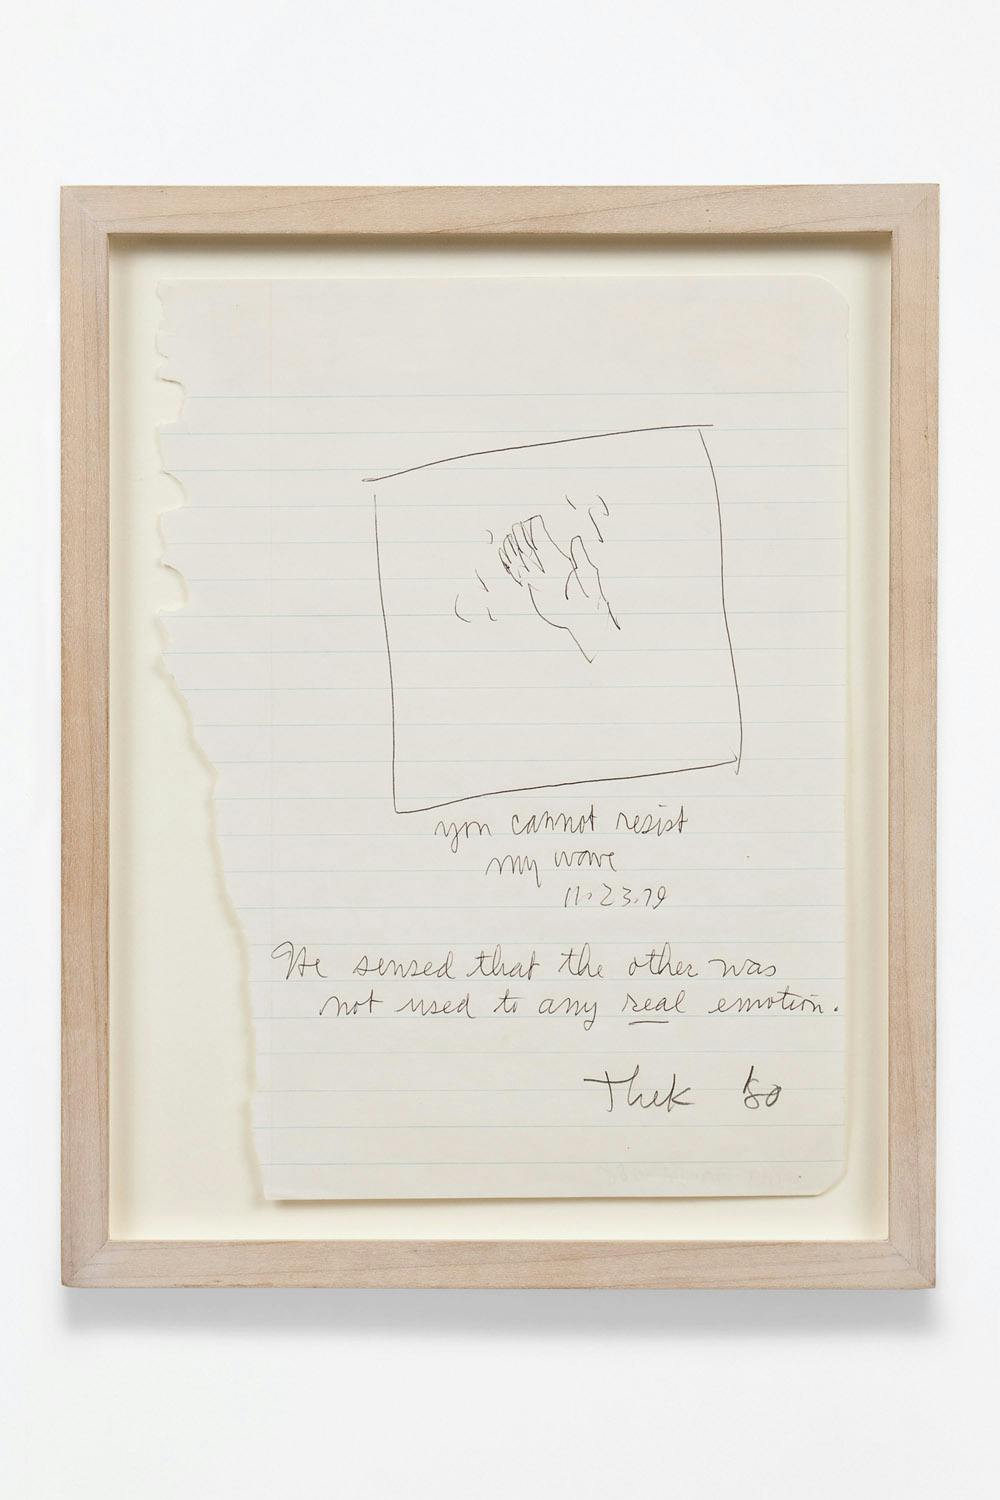 you cannot resist
my wave
11.23.79
He sensed that the other was
not used to any real emotion.
Thek 80